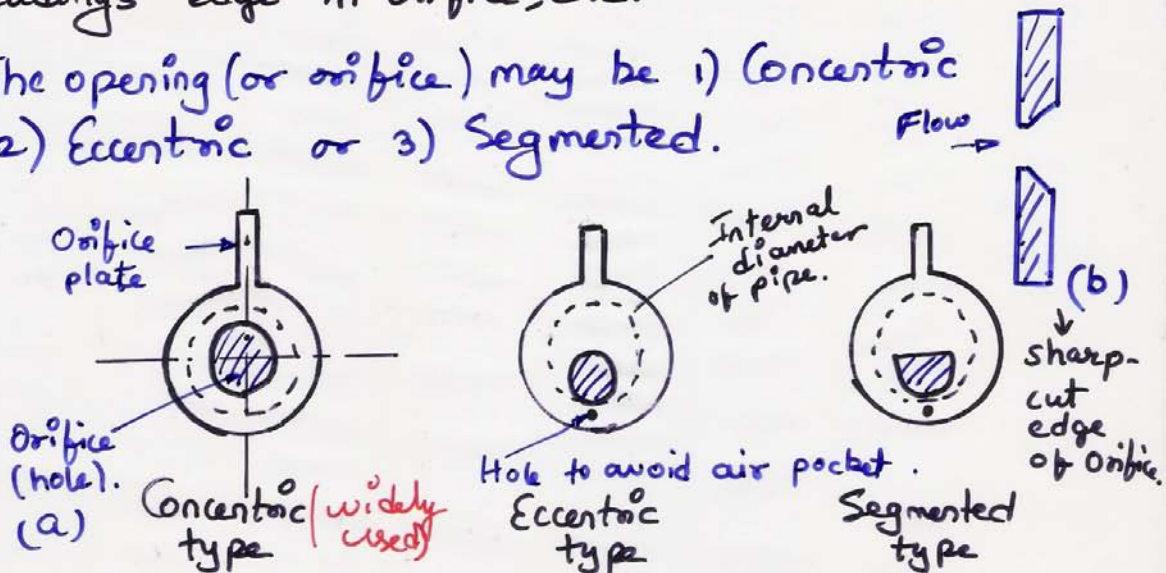 edge in orifice, etc.
The opening (or orifice) may be 1) Concentric
2) Eccentric or 3) Segmented.
Flow
Orifice
plate
Internal
diameter
of pipe.
(b)
sharp-
cut
edge
of Orifice.
Orifice
(hole).
(a)
Hole to avoid air pocket.
Concentric (widely
type used)
Eccentric
type
Segmented
type